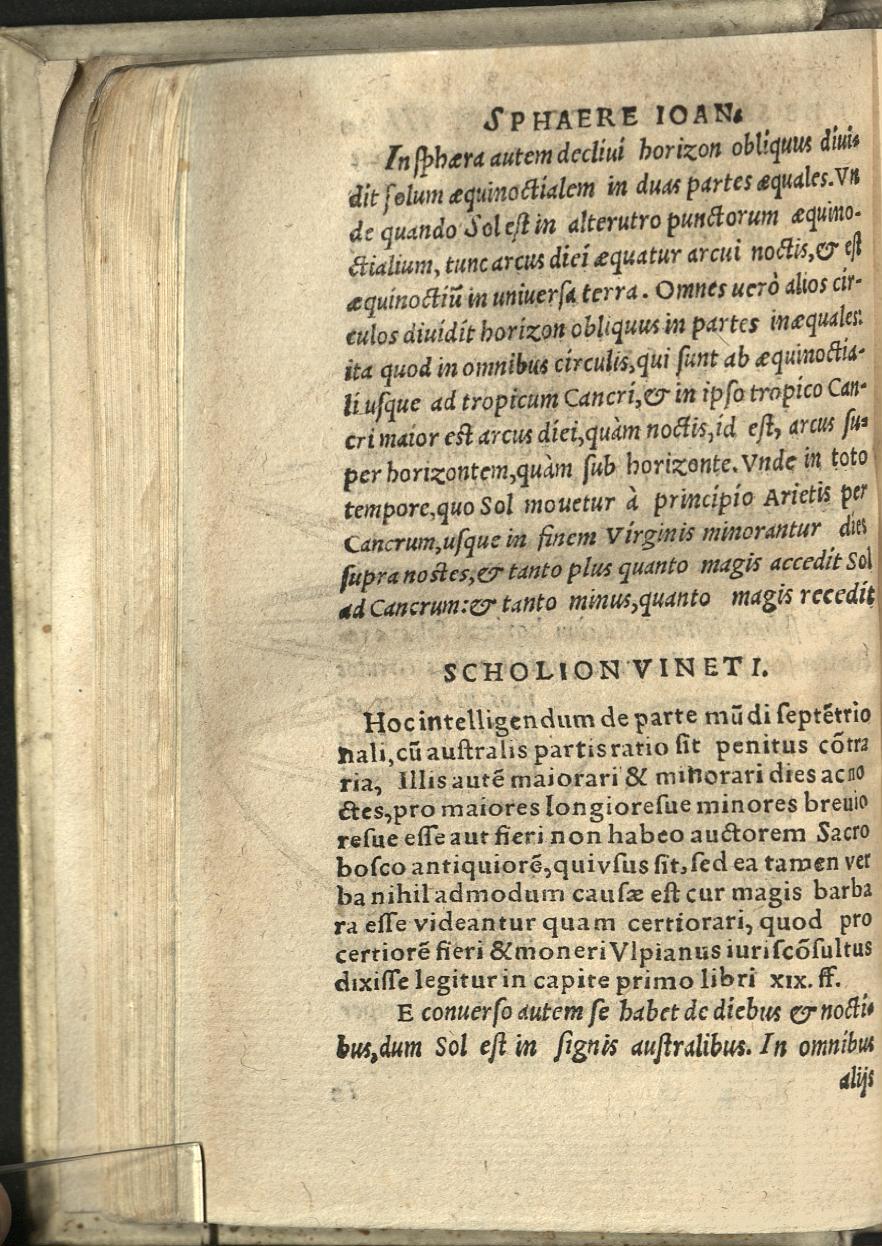 SPHAERE IOAN.
In sphæra autem decliui horizon obliquus diui-
dit solum æquinoctialem in duas partes æquales. Vn
de quando Sol est in alterutro punctorum æquino-
ctialium, tunc arcus diei æquatur arcui noctis, & est
æquinoctiũ in uniuersa terra. Omnes uerò alios cir-
culos diuidit horizon obliquus in partes inæquales:
ita quod in omnibus circulis, qui sunt ab æquinoctia-
li usque ad tropicum Cancri, & in ipso tropico Can-
cri maior est arcus diei, quàm noctis, id est, arcus su-
per horizontem, quàm sub horizonte. Vnde in toto
tempore, quo Sol mouetur à principio Arietis per
Cancrum, usque in finem Virginis minorantur dies
supra noctes, & tanto plus quanto magis accedit Sol
ad Cancrum: & tanto minus, quanto magis recedit
SCHOLION VINETI.
Hoc intelligendum de parte mũdi septẽtrio
nali, cũ australis partis ratio sit penitus cõtra
ria, Illis autẽ maiorari & minorari dies ac no
ctes, pro maiores longioresue minores breuio
resue esse aut fieri non habeo auctorem Sacro
bosco antiquiorẽ, qui vsus sit, sed ea tamen ver
ba nihil admodum causæ est cur magis barba
ra esse videantur quam certiorari, quod pro
certiorẽ fieri & moneri Vlpianus iuriscõsultus
dixisse legitur in capite primo libri xix. ff.
E conuerso autem se habet de diebus & nocti-
bus, dum Sol est in signis australibus. In omnibus
alijs